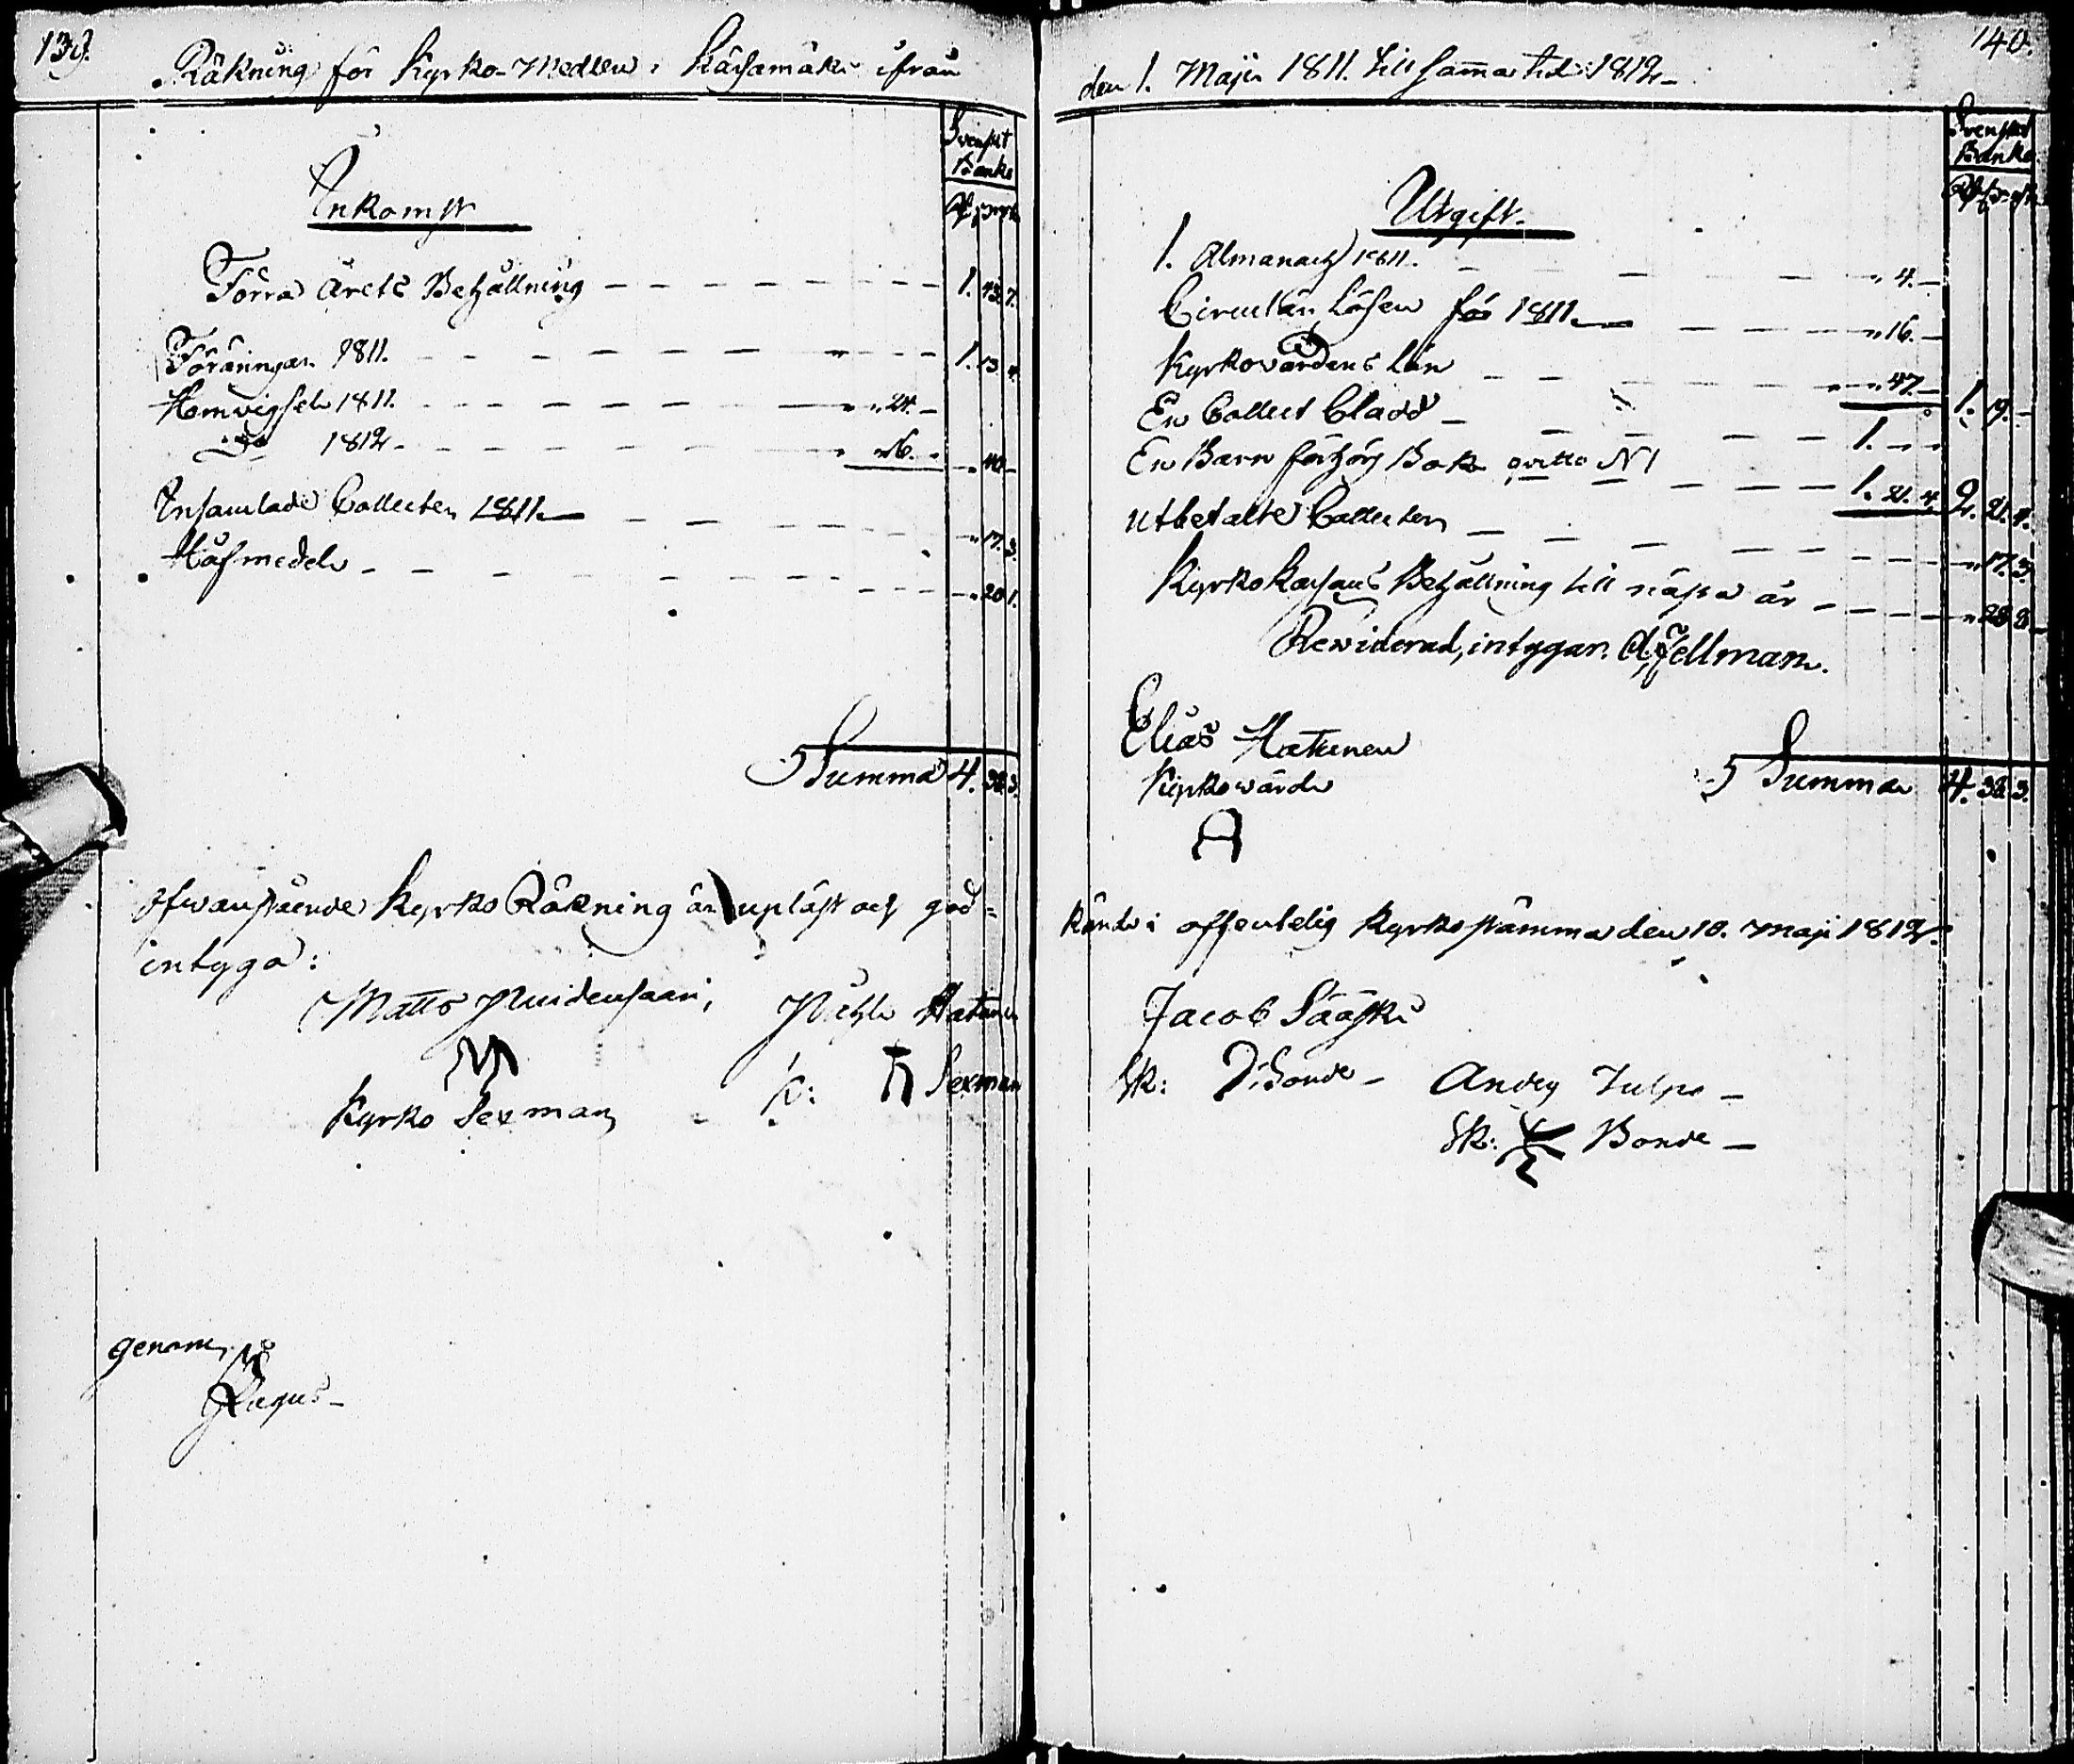 139.
Räkning för Kyrko-Medlen i Kärsämäki ifrån
Svenskt
Banko
Inkomst
Förra Årets Behållning 1. 43. 7.
Föräringar 1811. 1. 13. 4.
Hemvigseln 1811. 24.
Do 1812 16. 40
Insamlade Collecter 1811 17. 3.
Håfmedel 20 1.
Summa 4. 38. 3.
Ofwanstående Kyrko Räkning är upläst och god=
intyga:
Matts Muidensaari,
Kyrko Sexman
K: Sexman
genom
140.
den 1. Maji 1811. till samma tid 1812
Svenskt
Banko
Utgift
1. Almanach 1811. 4.
Circulär Lösen för 1811 16.
Kyrkovärdens Lön 47. 1. 19.
En Collect Cladd 1.
En Barn förhörs Bok qvitto N1 1. 21. 4. 2. 21. 4.
Utbetalte Collecter 17. 3.
Kyrko Kassans Behållning till nästa år 28. 8
Rewiderad, intygar. A. Fellman.
Elias Hatunen
Kyrkowärde
Summa 4. 38. 3.
känd i offentelig Kyrkostämma den 10. Maji 1812.
Jacob Sääski
Sk: Bonde
Anders Tulpo
Sk: Bonde